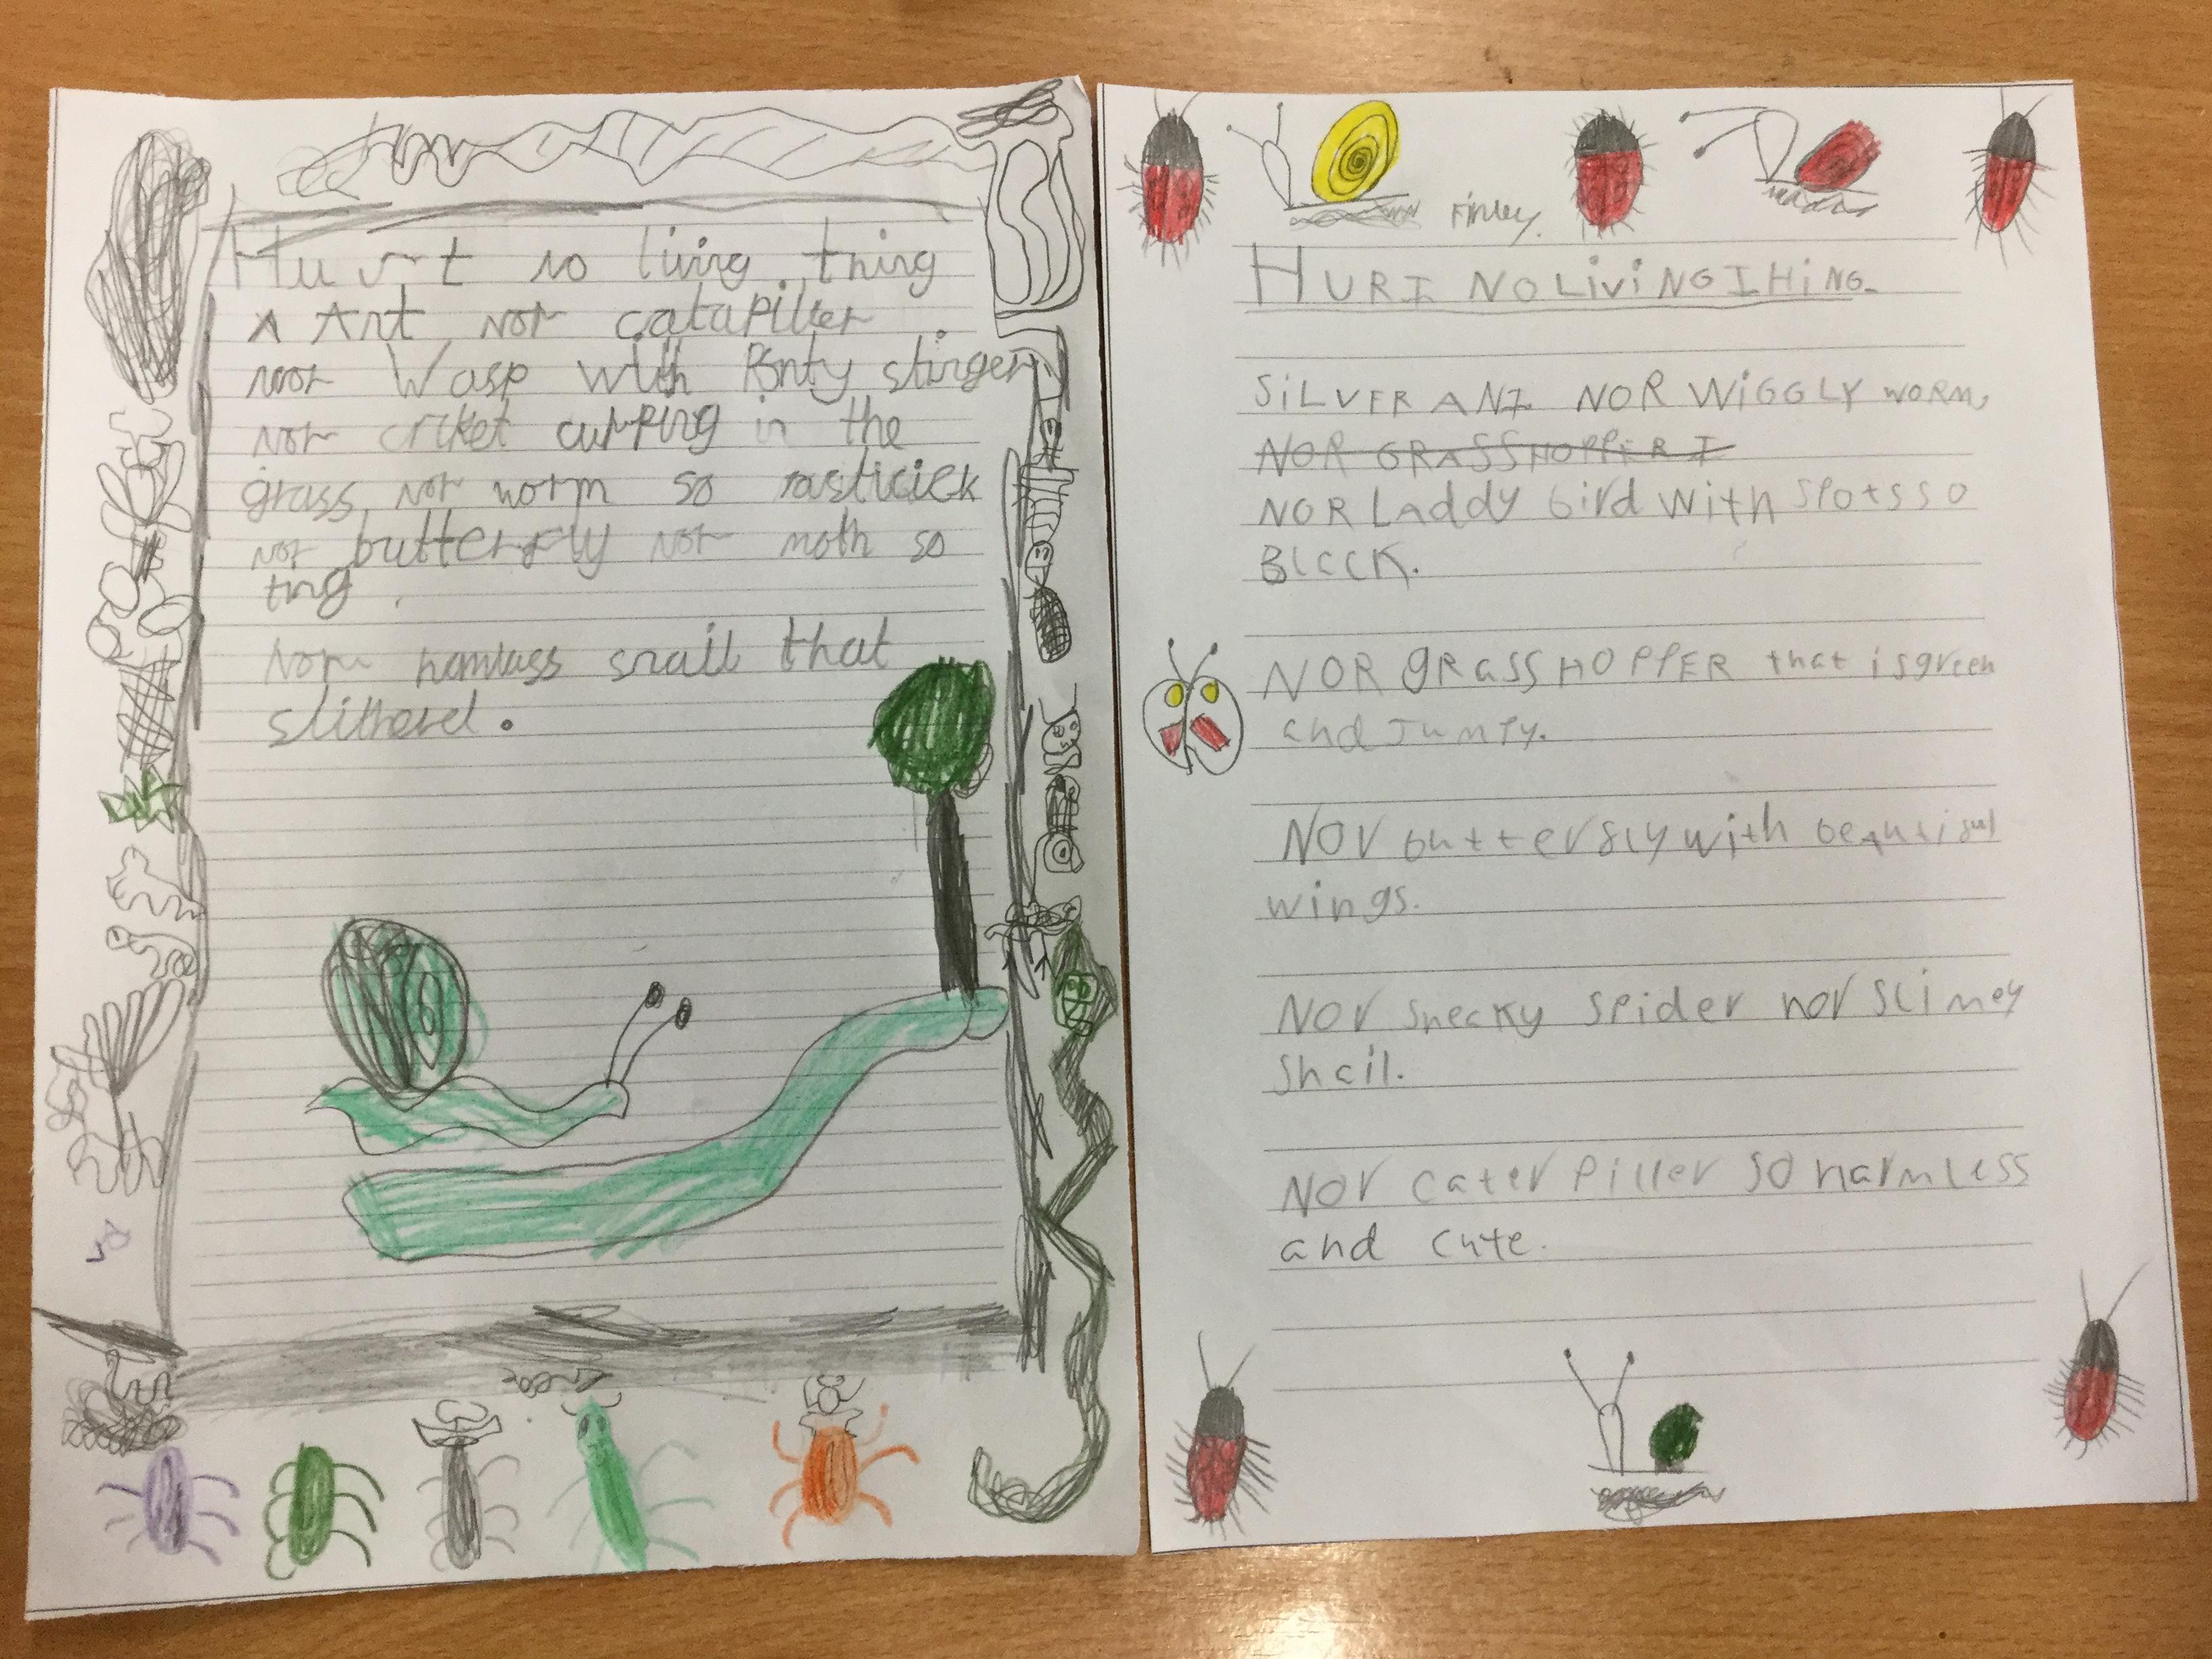 Hurt no living thing
A Ant nor catapiller
nor Wasp with Ponty stinger
nor criket cumping in the
grass nor worm so
nor butterfly nor moth so
ting
Nor hamlass snail that
slitherd.
Finley.
HURT NO LiViNG THiNG.
SiLVER ANT NOR WiGGLY WORM,
NOR GRASSHOPPER I
NOR Laddy bird With Spots so
BLCCK.
NOR gRaSSHOPPER that is green
and Jumpy.
NOr butterfly with beautiful
wings.
NOr sneaky spider nor slimey
snail.
NOr caterpiller so harmless
and cute.